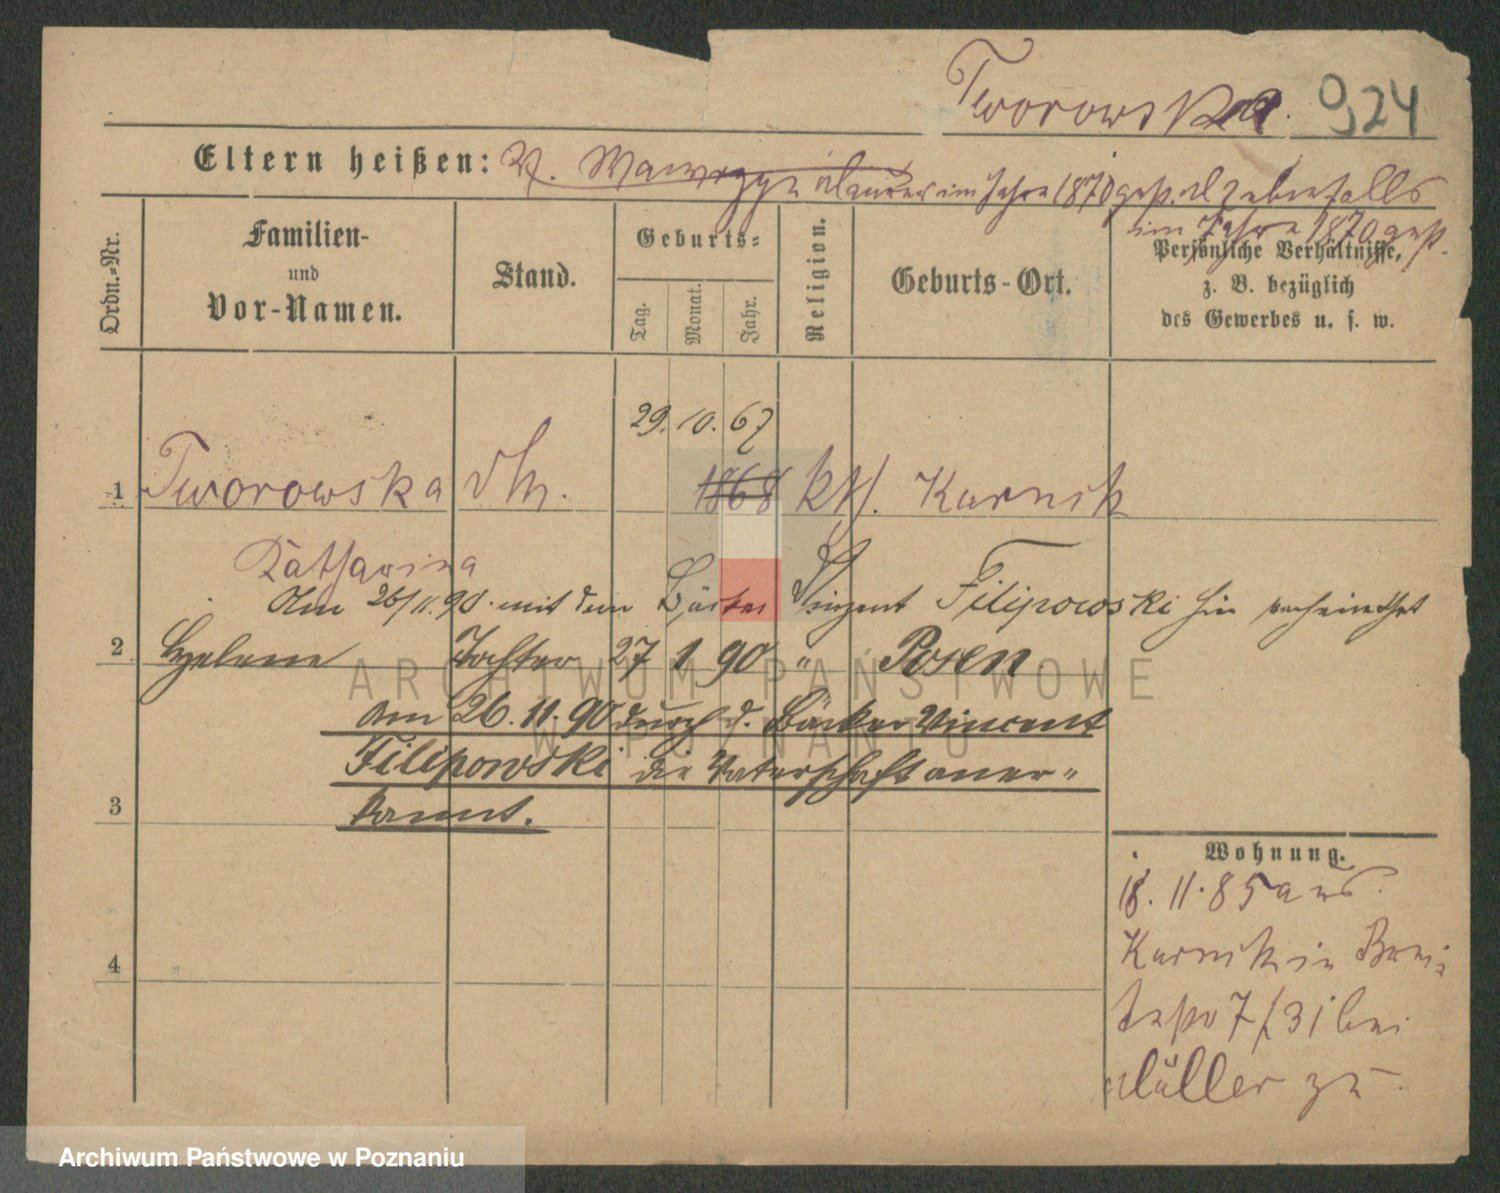 Tworowska. 924
Eltern heißen: V. Wawrzyn Maurer im Jahre 1870 gest. M ebenfalls
im Jahre 1870 gest.
Ordn.-Nr.
Familien-
und
Vor-Namen.
Stand.
Geburts-
Tag.
Monat.
Jahr.
Religion.
Geburts-Ort.
Persönliche Verhältnisse,
z. B. bezüglich
des Gewerbes u. s. w.
29. 10. 67
1 Tworowska 1868 kth. Kurnik
Katharina
Am 26/11. 90. mit dem Bäcker Vinzent Filipowski hier verheirathet
2 Helene Tochter 27 1 90 " Posen
Am 26. 11. 90 durch d. Bäcker Vincent
Filipowski die Vaterschaft aner-
3 kannt.
Wohnung.
18. 11. 85 aus
Kurnik in Brei-
testr 7/31 bei
4
Müller zu
ARCHIWUM PAŃSTWOWE
W POZNANIU
Archiwum Państwowe w Poznaniu